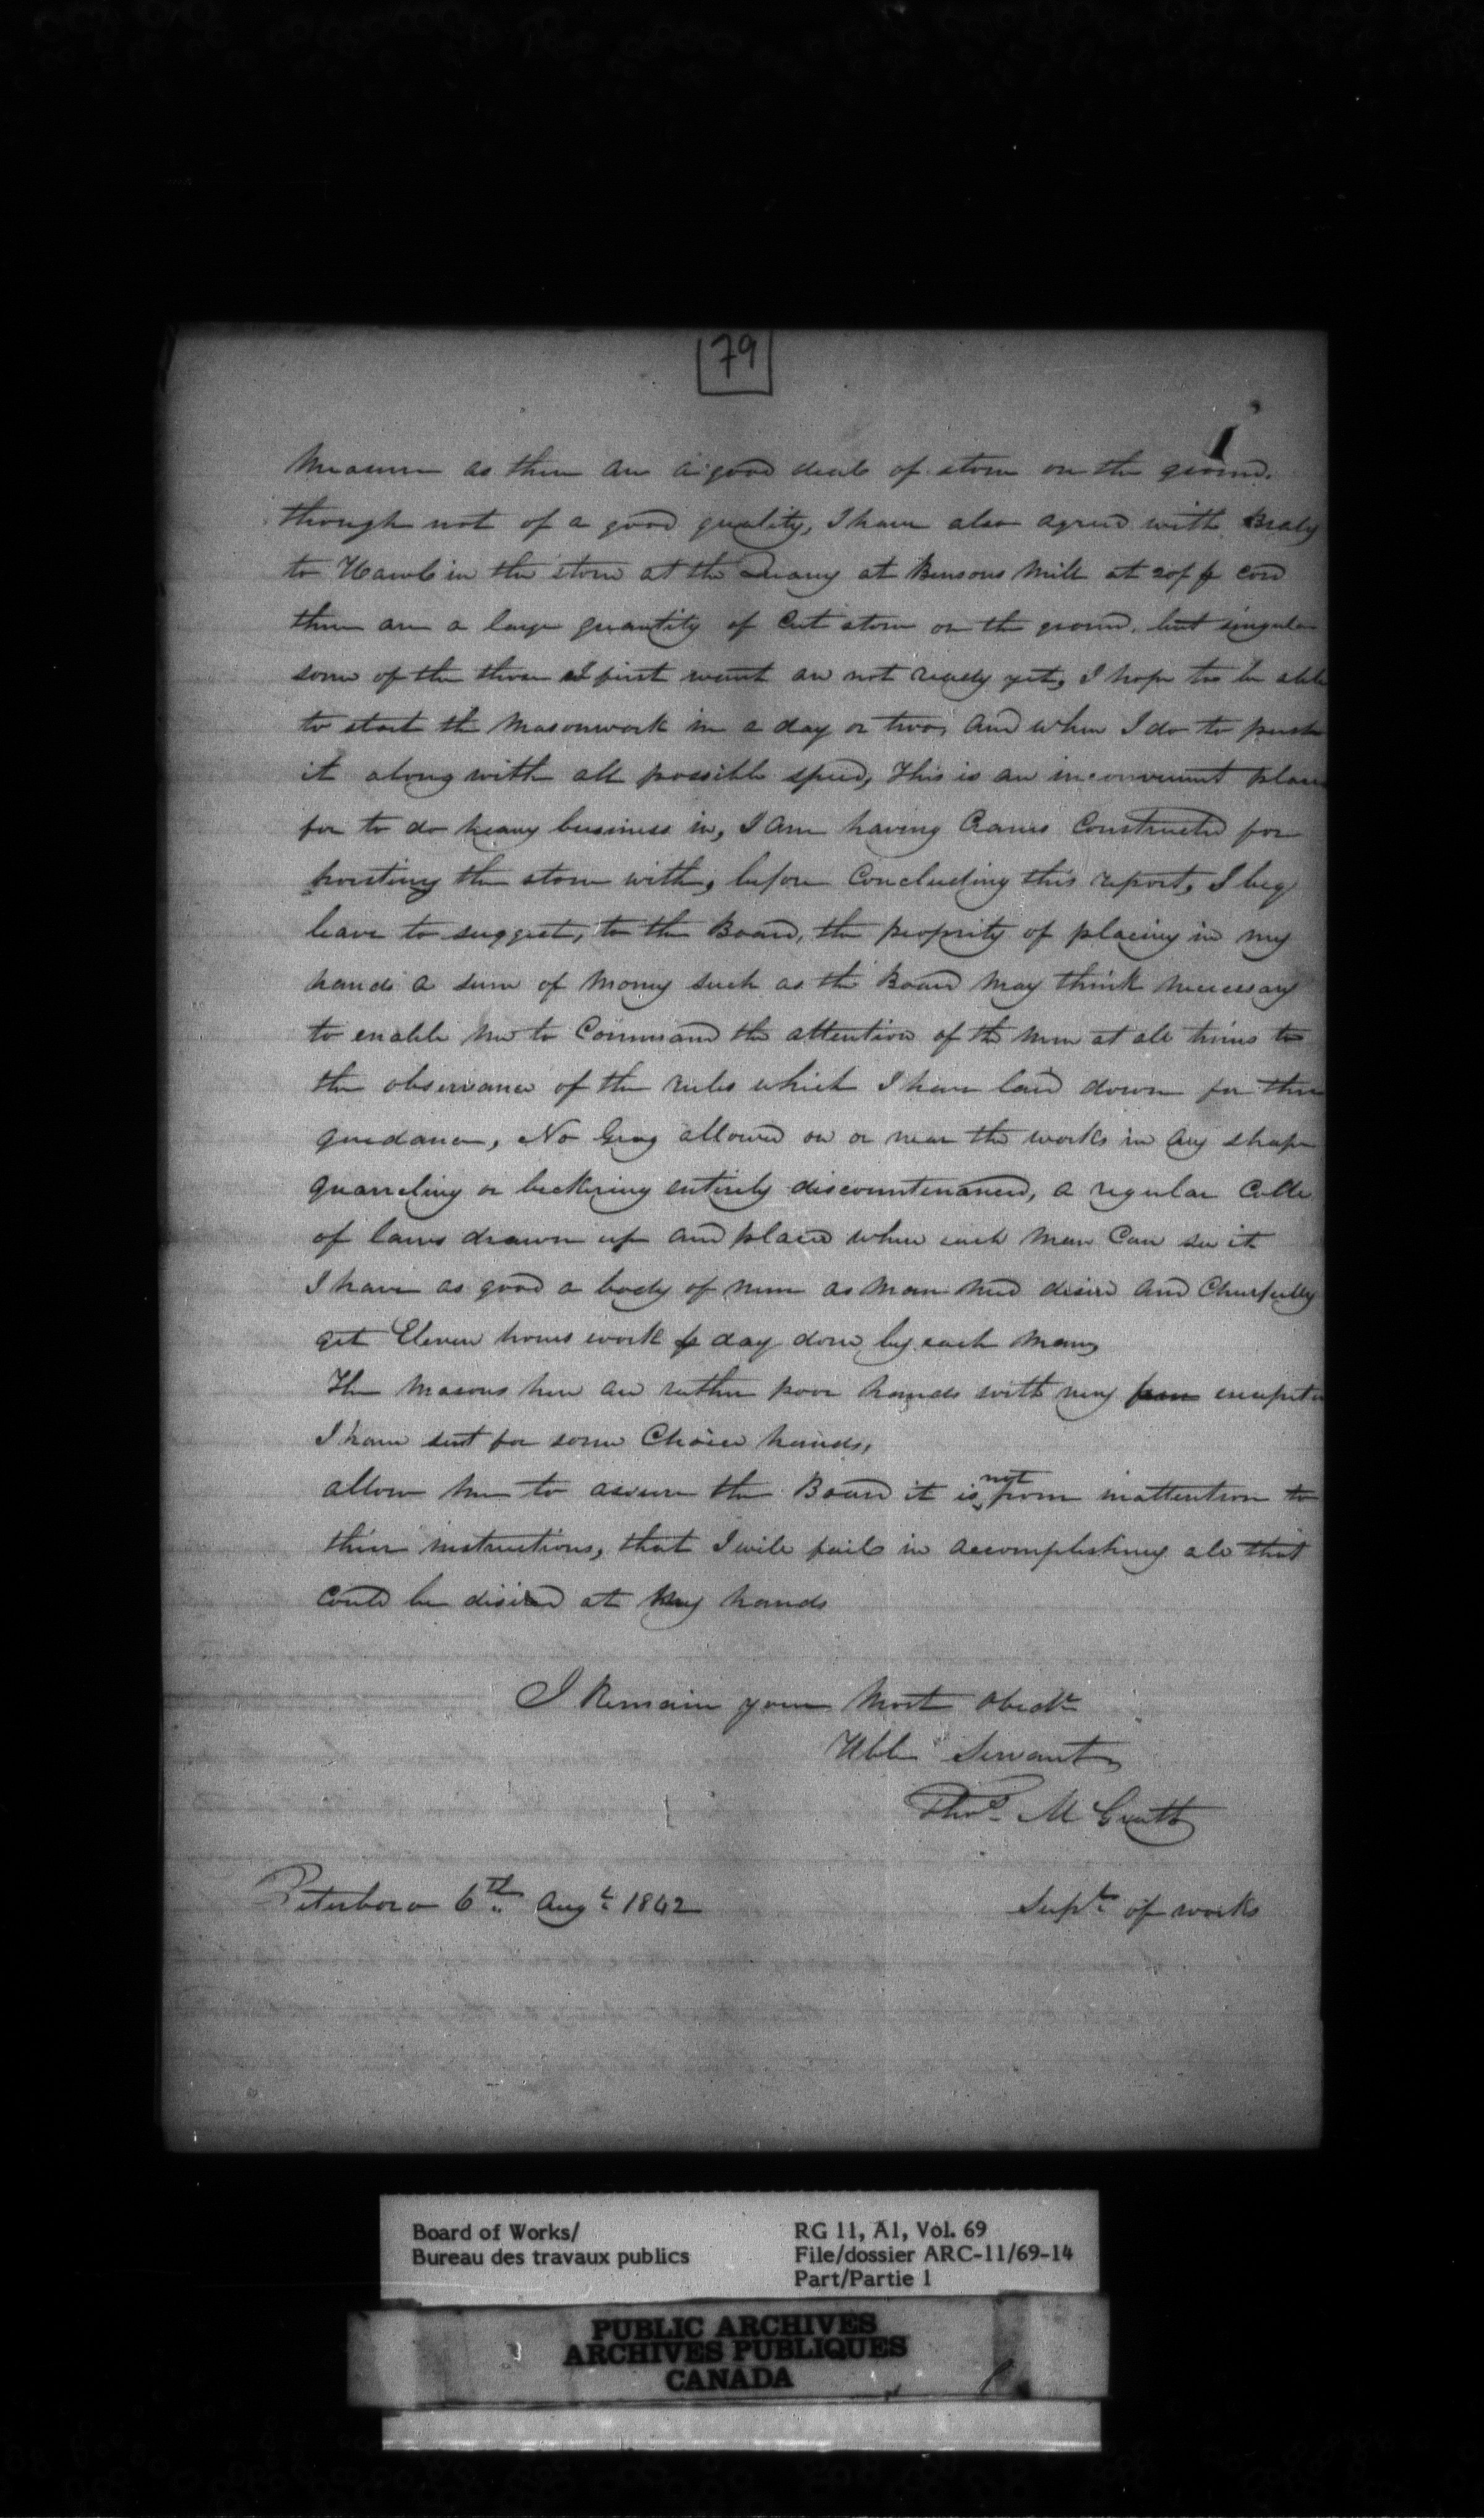 79
Measure as there are a good deal of stone on the ground.
though not of a good quality, I have also agreed with
to Hawl in the stone at the Quarry at Bensons Mill at 20/ p cord
there are a large quantity of Cut stone on the ground. but singular
some of the those I first want are not ready yet, I hope too be able
to start the Masonwork in a day or two, and when I do to push
it along with all possible speed, This is an inconvenient place
for to do heavy business in, I am having Cranes Constructed for
hoisting the stone with, before Concluding this report, I beg
leave to suggest, to the Board, the propriety of placing in my
hands a sum of Money such as the Board May think necessary
to enable me to Command the attention of the men at all times to
the observance of the rules which I have laid down for their
guidance, No Grog allowed on or near the works in any shape
quarreling or bickering entirely discountenanced, a regular Code
of laws drawn up and placed where each man Can see it
I have as good a body of men as man need desire and Cheerfully
get Eleven hours work p day done by each man,
The Masons here are rather poor hands with very exceptions
I have sent for some Choice hands,
allow me to assure the Board it is not from inattention to
their instructions, that I will fail in accomplishing all that
could be desired at my hands
I Remain your Most Obedt
Hble Servant
Thos. McGrath
Peterboro 6th Augt 1842
Supt of works
Board of Works/
Bureau des travaux publics
RG 11, A1, Vol. 69
File/dossier ARC-11/69-14
Part/Partie 1
PUBLIC ARCHIVES
ARCHIVES PUBLIQUES
CANADA